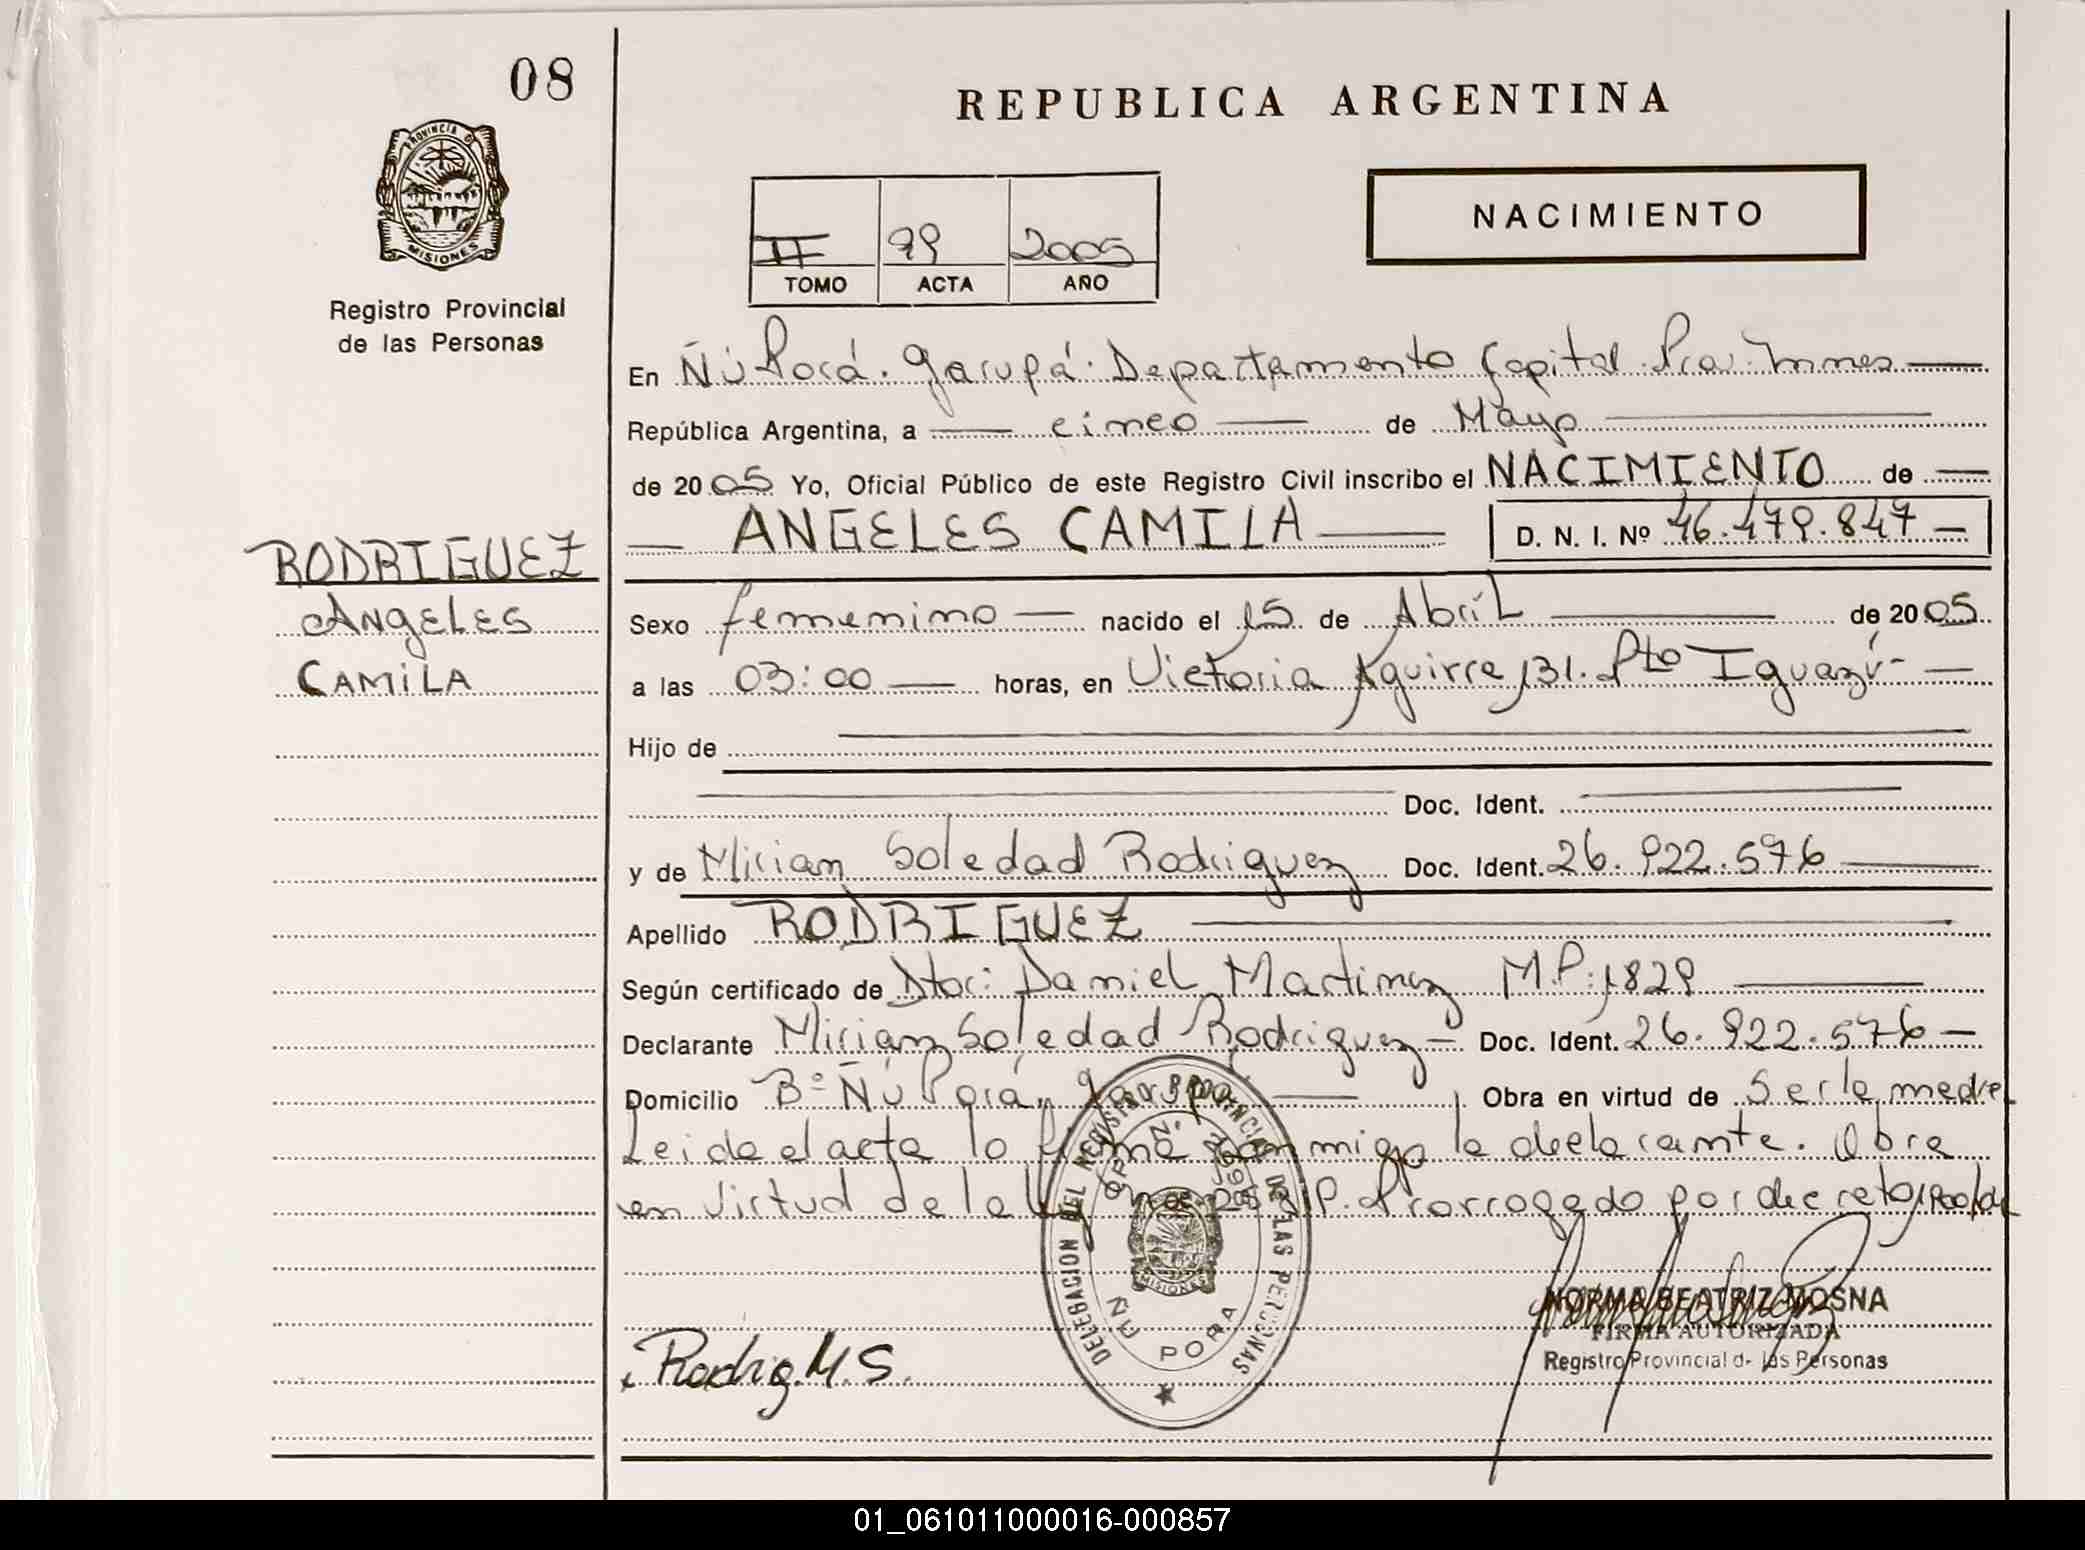 08
PROVINCIA D
MISIONES
Registro Provincial
de las Personas
REPUBLICA ARGENTINA
NACIMIENTO
II 99 2005
TOMO ACTA AÑO
En Ñú Porá. Garupá. Departamento Capital. Prov. Mnes
República Argentina, a cinco de Mayo
de 2005 Yo, Oficial Público de este Registro Civil inscribo el NACIMIENTO de
ANGELES CAMILA D. N. I. Nº 46.479.847
RODRIGUEZ
ANGELES
CAMILA
Sexo femenino nacido el 15 de Abril de 2005
a las 03:00 horas, en Victoria Aguirre 131. Pto Iguazú
Hijo de
Doc. Ident.
y de Mirian Soledad Rodriguez Doc. Ident. 26.922.576
Apellido RODRIGUEZ
Según certificado de Dtor: Daniel Martinez M.P: 1829
Declarante Mirian Soledad Rodriguez Doc. Ident. 26.922.576
Domicilio Bº Ñú Porá, Garupá Obra en virtud de Ser la madre
Leida el acta la firma conmigo la declarante. Obra
en virtud de la Ley Prorrogado por decreto
DELEGACION DEL REGISTRO PROVINCIAL DE LAS PERSONAS
MISIONES
ÑU PORA
Rodrig. M. S.
NORMA BEATRIZ MOSNA
FIRMA AUTORIZADA
Registro Provincial d- las Personas
01_061011000016-000857